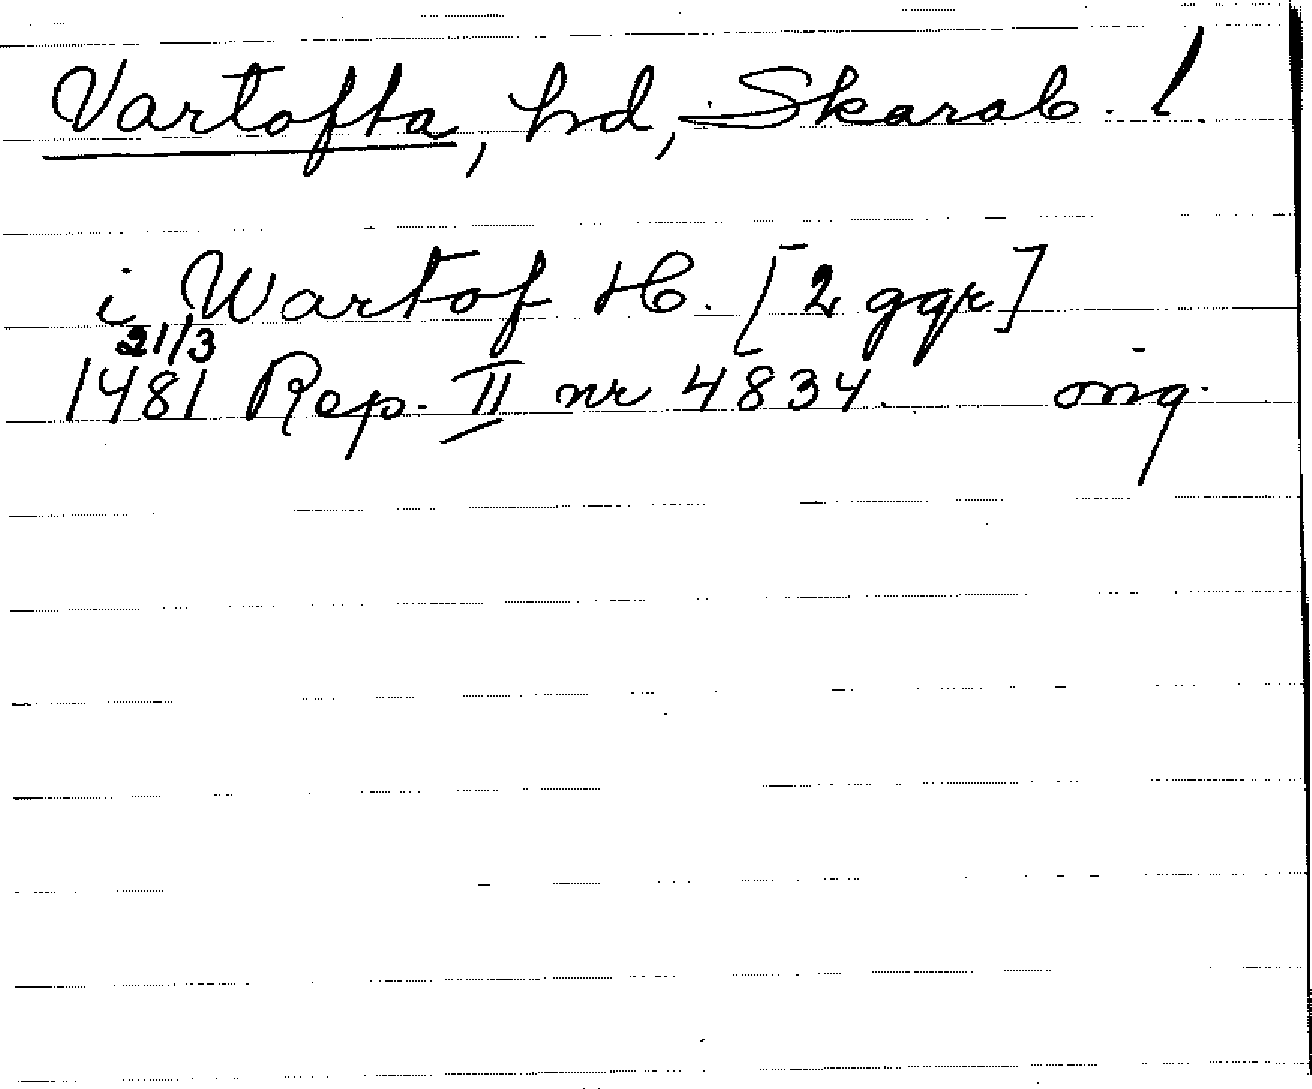 Vartofta, hd, Skarab. l.
i Wartof H. [2 ggr]
21/3
1481 Rep. II nr 4834. orig.